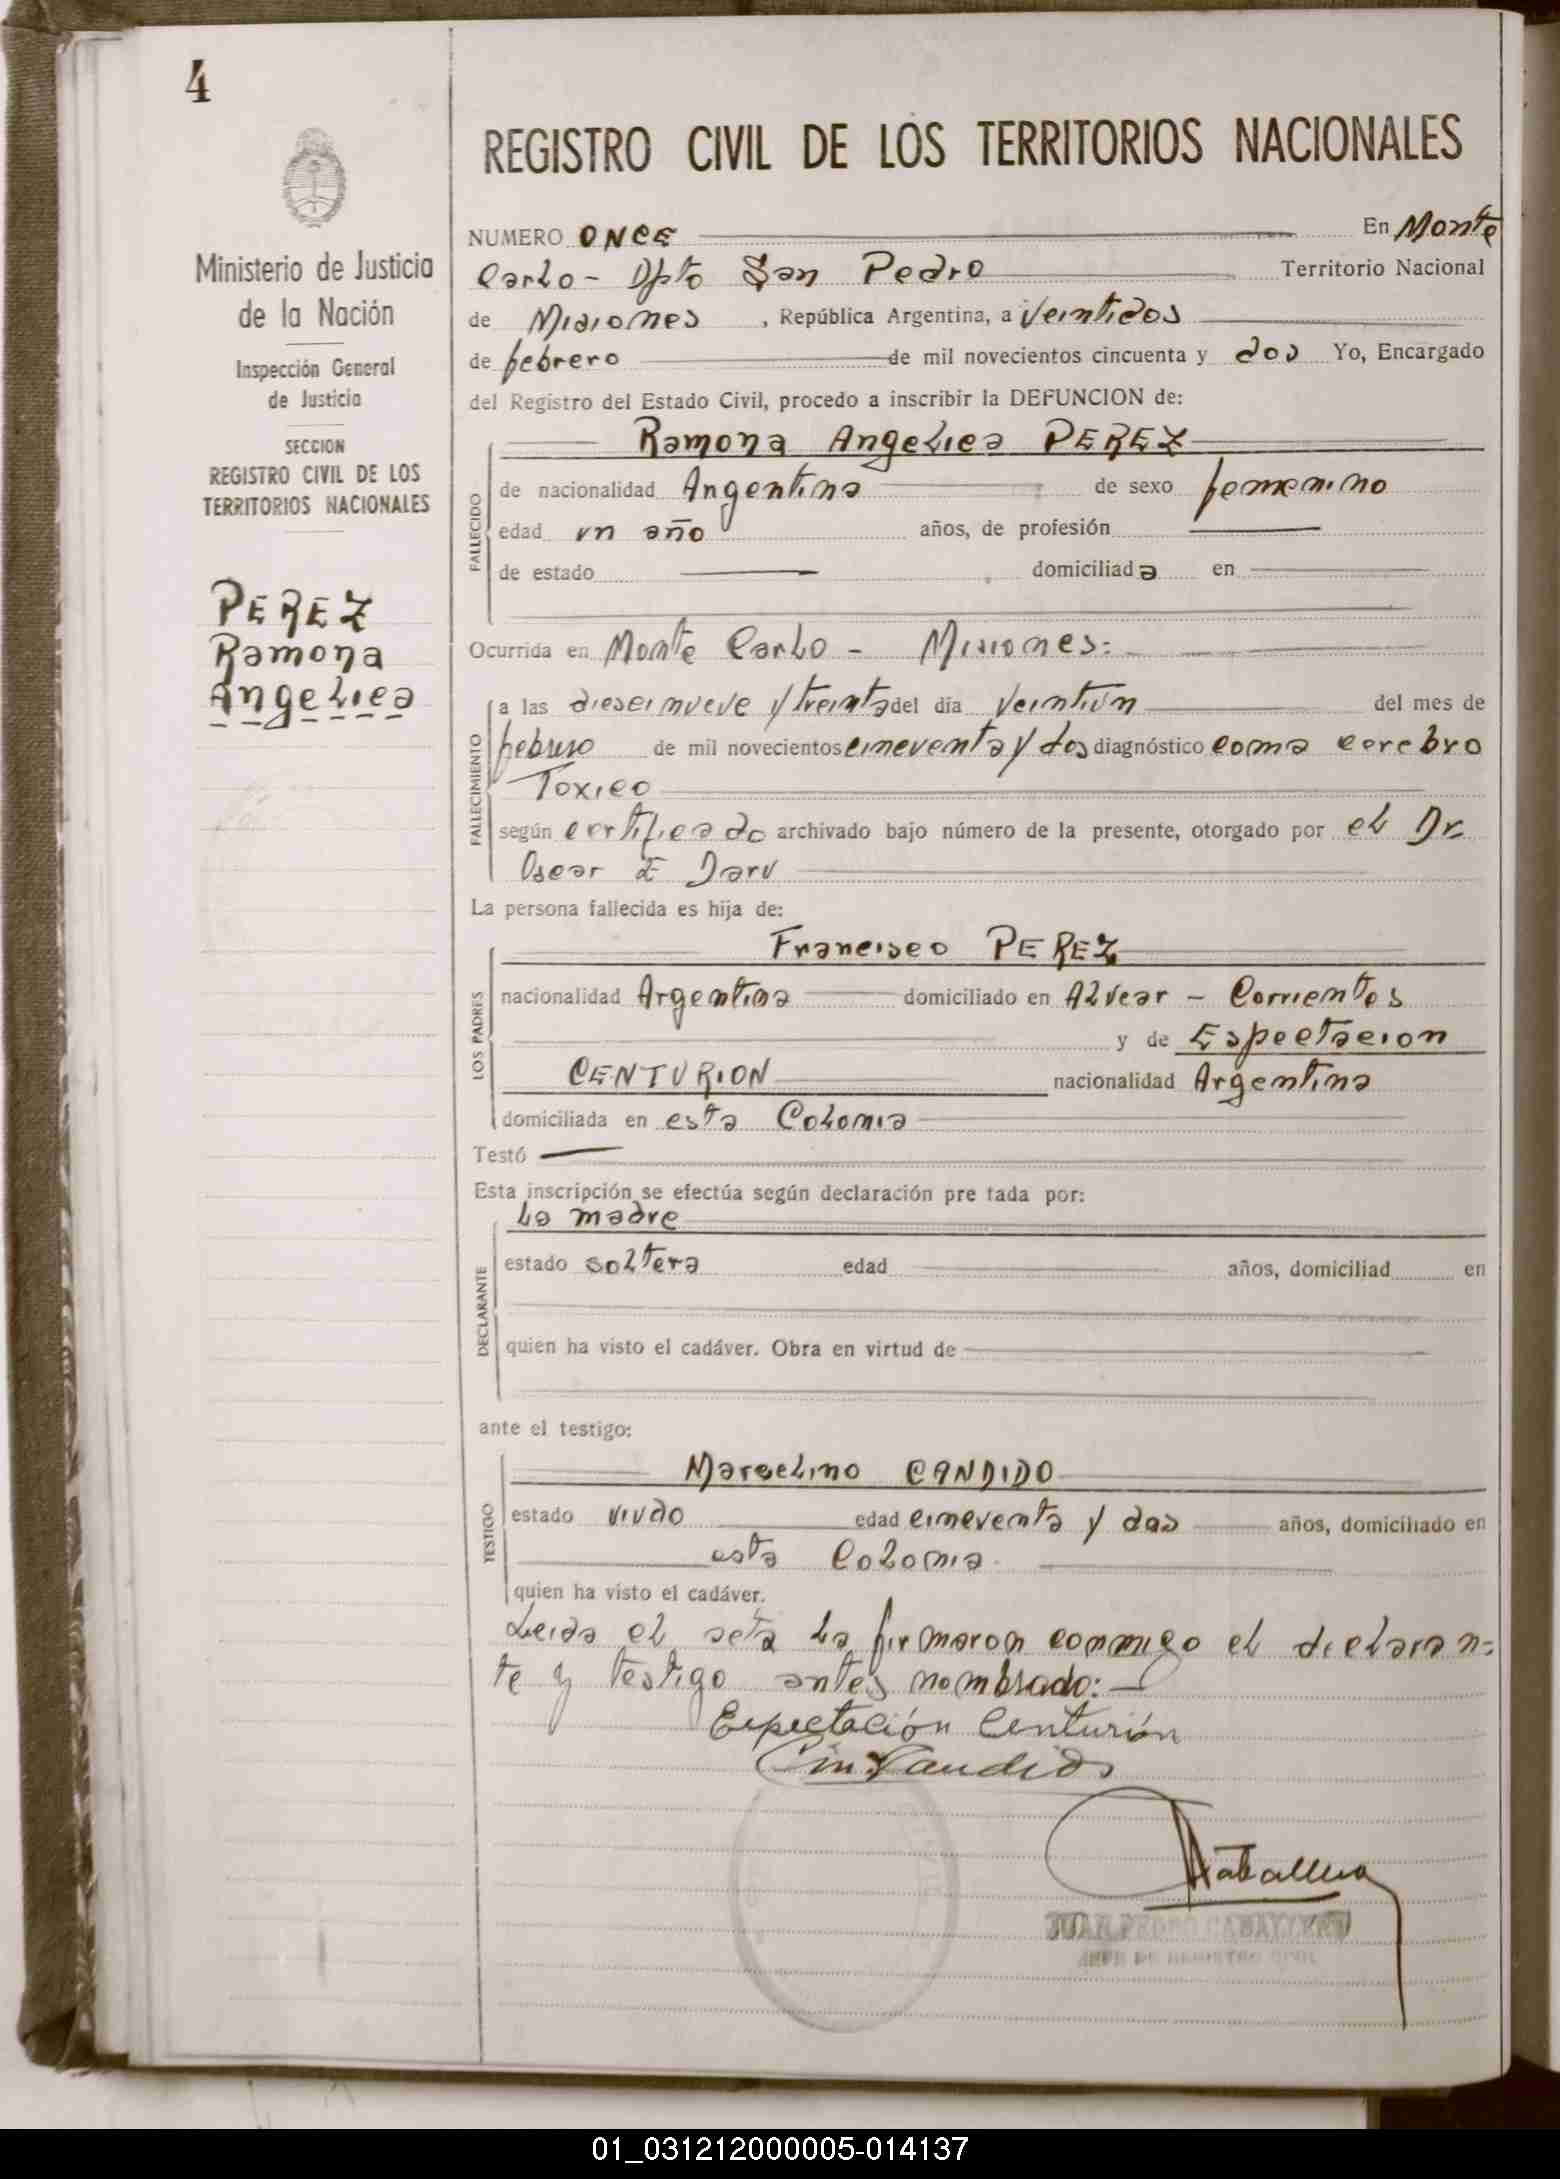 4
REGISTRO CIVIL DE LOS TERRITORIOS NACIONALES
Ministerio de Justicia
de la Nación
Inspección General
de Justicia
SECCION
REGISTRO CIVIL DE LOS
TERRITORIOS NACIONALES
PEREZ
Ramona
Angelica
NUMERO ONCE En Monte
Carlo - Dpto San Pedro Territorio Nacional
de Misiones , República Argentina, a Veintidos
de febrero de mil novecientos cincuenta y dos Yo, Encargado
del Registro del Estado Civil, procedo a inscribir la DEFUNCION de:
Ramona Angelica PEREZ
FALLECIDO
de nacionalidad Argentina de sexo femenino
edad un año años, de profesión
de estado domiciliada en
Ocurrida en Monte Carlo - Misiones:
FALLECIMIENTO
a las diesei nueve y treinta del día veintiún del mes de
febrero de mil novecientos cincuenta y dos diagnóstico coma cerebro
Toxico
según certificado archivado bajo número de la presente, otorgado por el Dr.
Oscar E Daru
La persona fallecida es hija de:
Francisco PEREZ
LOS PADRES
nacionalidad Argentina domiciliado en Alvear - Corrientes
y de Espectacion
CENTURION nacionalidad Argentina
domiciliada en esta Colonia
Testó
Esta inscripción se efectúa según declaración pre tada por:
La madre
DECLARANTE
estado soltera edad años, domiciliad en
quien ha visto el cadáver. Obra en virtud de
ante el testigo:
Marcelino CANDIDO
TESTIGO
estado viudo edad cincuenta y dos años, domiciliado en
esta Colonia
quien ha visto el cadáver.
Leida el acta la firmaron conmigo el declaran-
te y testigo antes nombrado:
Expectación Centurión
Candido
Caballero
JUAN PEDRO CABALLERO
JEFE DE REGISTRO CIVIL
01_031212000005-014137